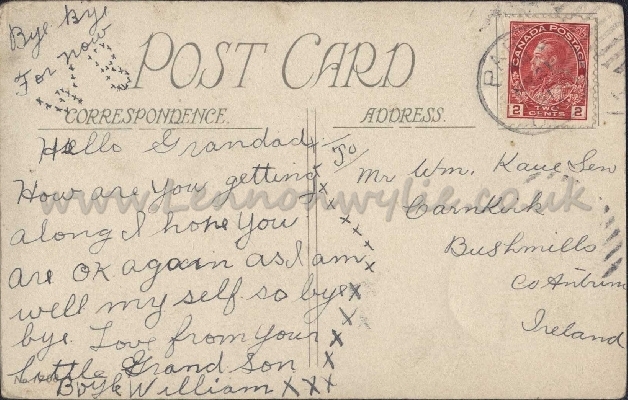 Bye Bye
For now
POST CARD
CORRESPONDENCE.
ADDRESS.
CANADA POSTAGE
2 TWO CENTS 2
Hello Grandad
How are you getting
along I hope you
are OK again as I am
well my self so bye
bye. Love from your
little Grand Son
William XXX
To
Mr Wm. Kane Sen
Carnkirk
Bushmills
Co Antrim
Ireland
www.Lennonwylie.co.uk